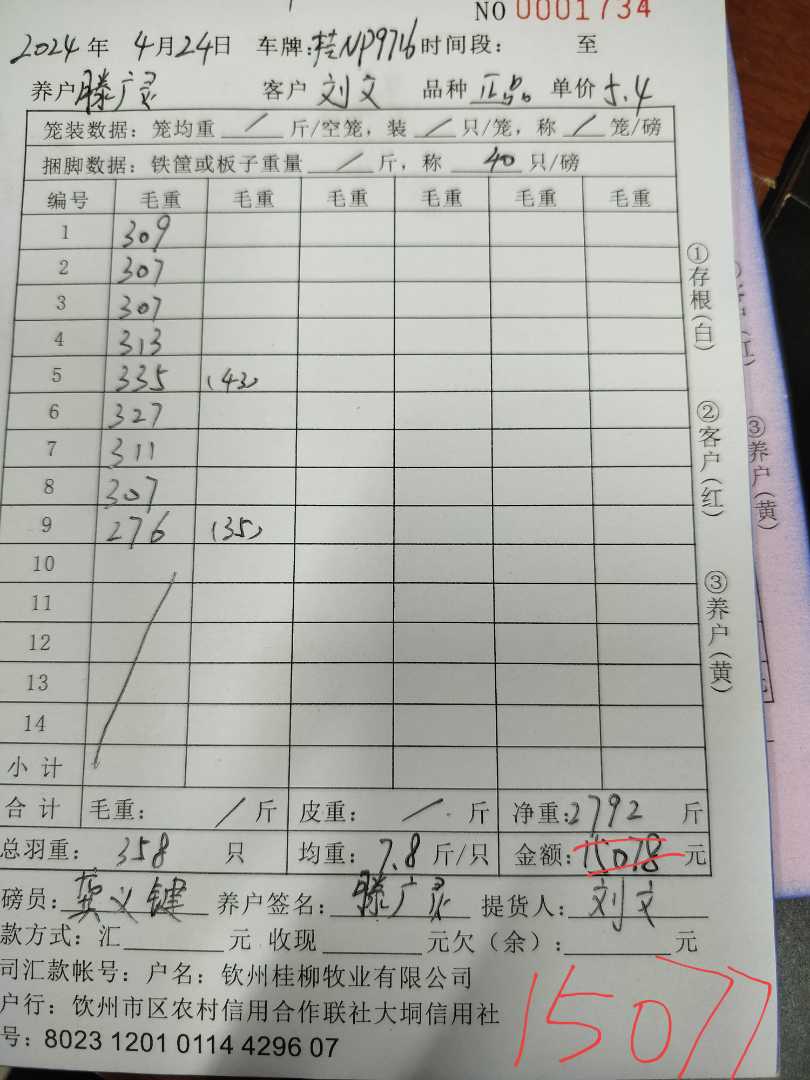 NO 0001734
2024 年 4月24日 车牌:桂NP9716 时间段: 至
养户 滕广灵 客户 刘文 品种 正品 单价 5.4
笼装数据: 笼均重 / 斤/空笼, 装 / 只/笼, 称 / 笼/磅
捆脚数据: 铁筐或板子重量 / 斤, 称 40 只/磅
编号 毛重 毛重 毛重 毛重 毛重 毛重
1 309
2 307
3 307
4 313
5 335 (43)
6 327
7 311
8 307
9 276 (35)
10
11
12
13
14
小 计
合 计 毛重: / 斤 皮重: / 斤 净重:2792 斤
总羽重: 358 只 均重: 7.8 斤/只 金额:15078 元
磅员: 龚义键 养户签名: 滕广灵 提货人: 刘文
款方式: 汇 元 收现 元欠(余): 元
司汇款帐号: 户名: 钦州桂柳牧业有限公司
户行: 钦州市区农村信用合作联社大垌信用社
号: 8023 1201 0114 4296 07
15077
①存根(白)
②客户(红)
③养户(黄)
③养户(黄)